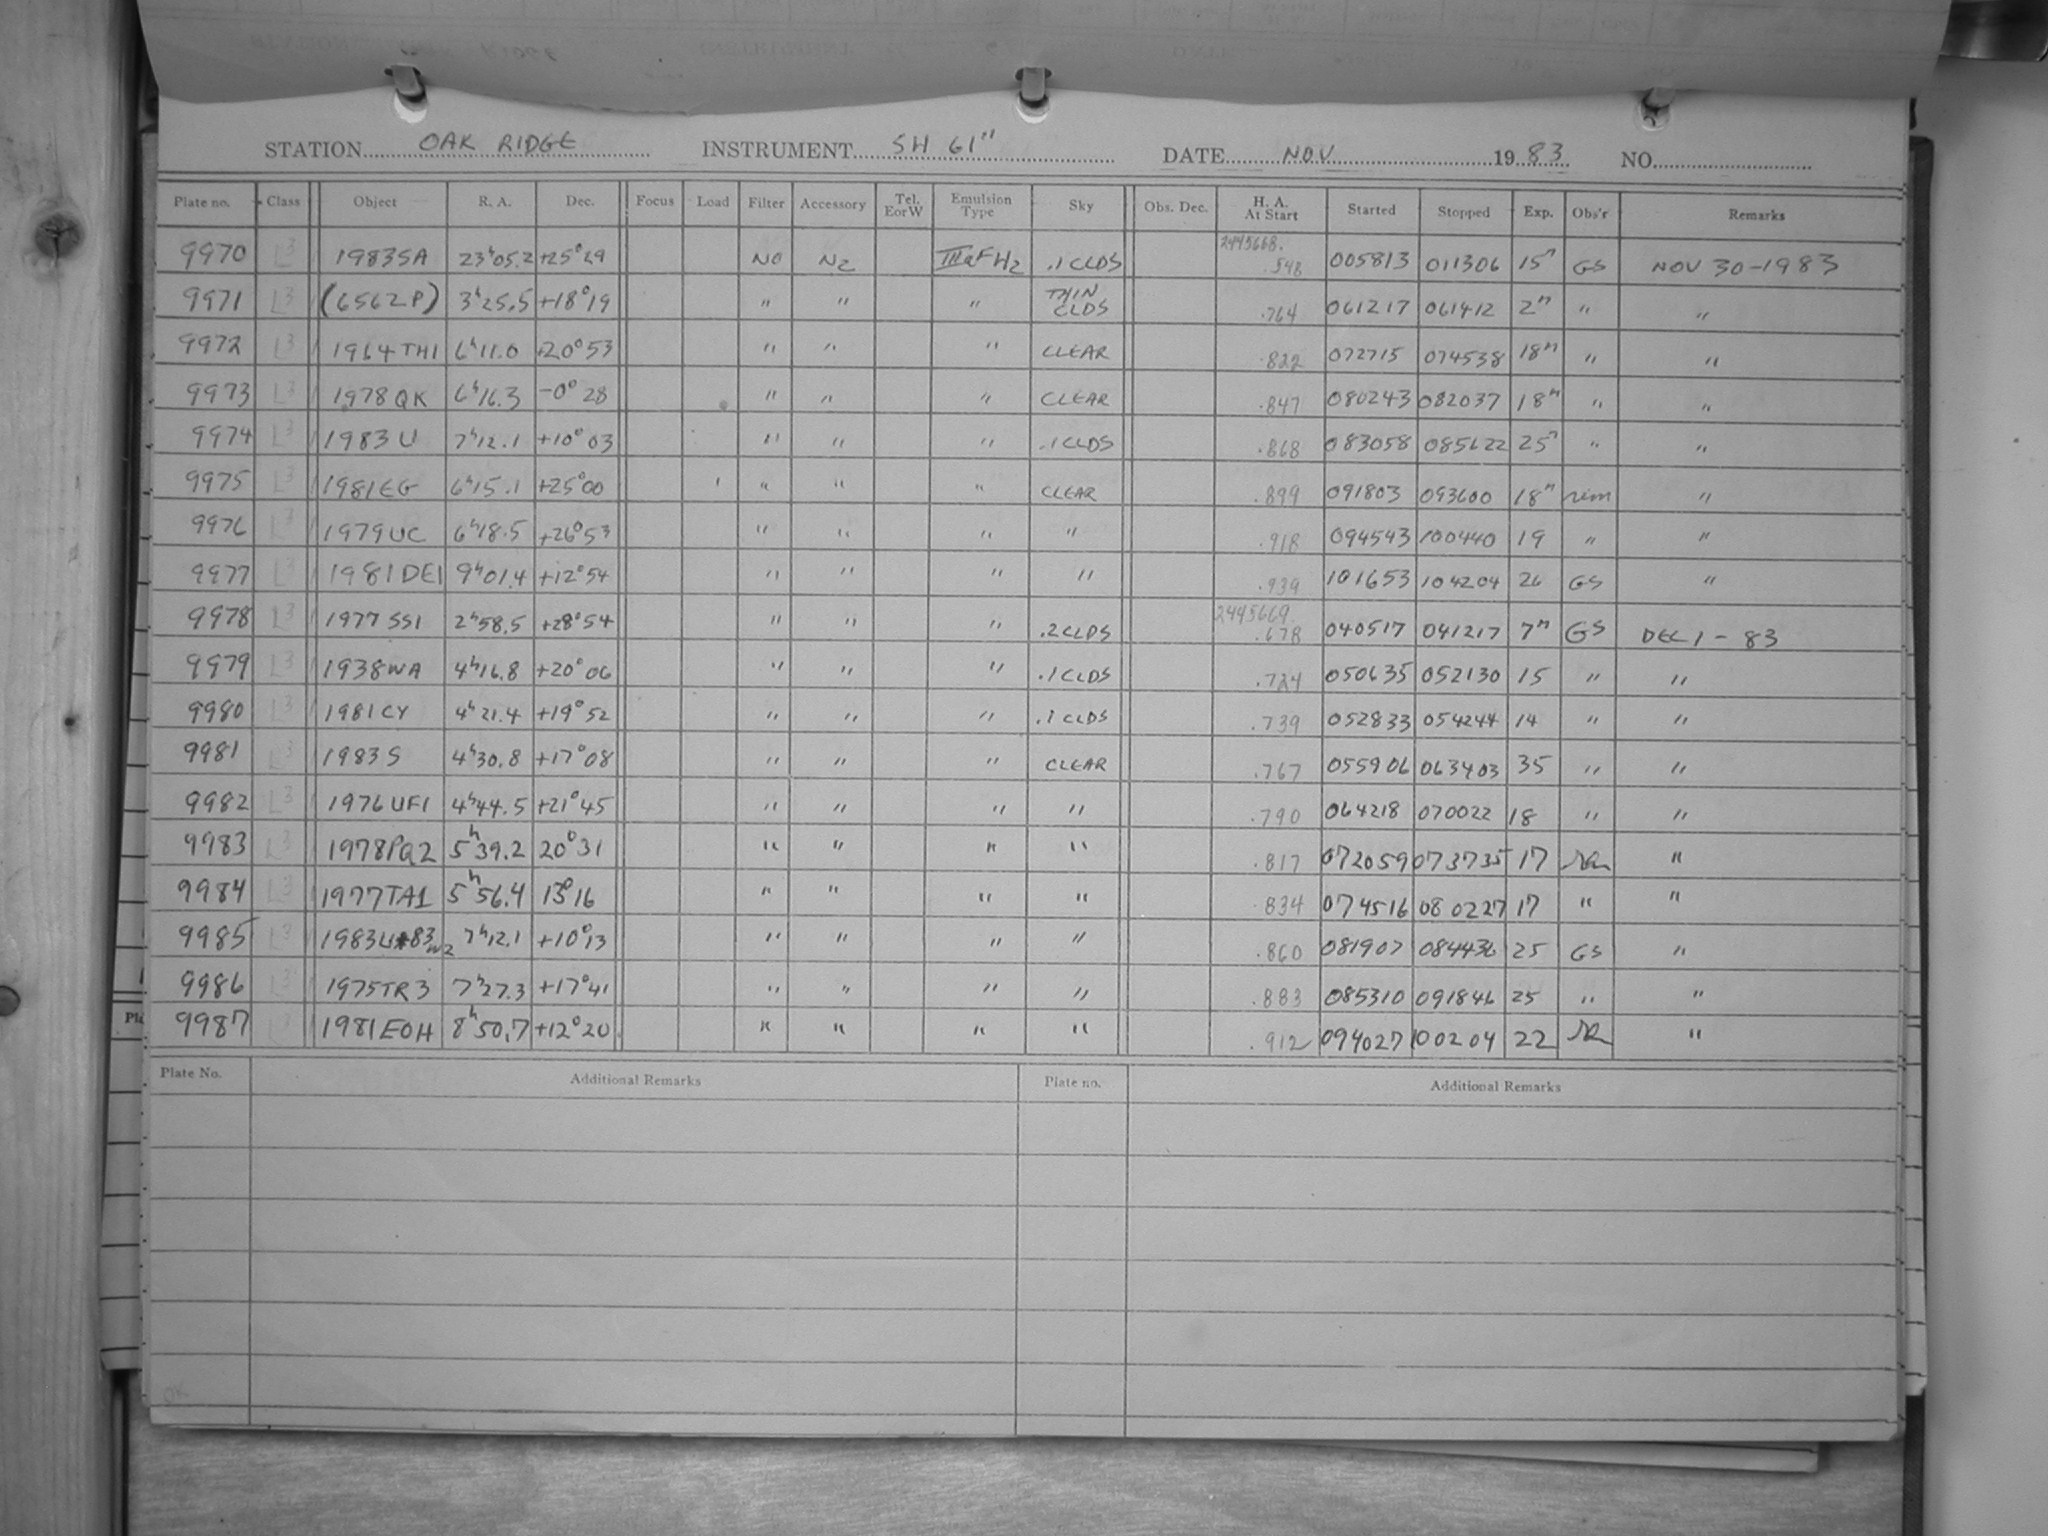 STATION OAK RIDGE INSTRUMENT SH 61" DATE NOV 1983 NO.
Plate no. Class Object R. A. Dec. Focus Load Filter Accessory Tel. EorW Emulsion Type Sky Obs. Dec. H. A. At Start Started Stopped Exp. Obs'r Remarks
9970 L3 1983SA 23h05.2 +25°29 NO N2 IIIaFH2 .1CLDS 2445668. .548 005813 011306 15m GS NOV 30-1983
9971 L3 (6562P) 3h25.5 +18°19 " " " THIN CLDS .764 061217 061412 2m " "
9972 L3 1964TH1 6h11.0 +20°53 " " " CLEAR .822 072715 074538 18m " "
9973 L3 1978QK 6h16.3 -0°28 " " " CLEAR .847 080243 082037 18m " "
9974 L3 1983U 7h12.1 +10°03 " " " .1CLDS .868 083058 085622 25m " "
9975 L3 1981EG 6h15.1 +25°00 " " " CLEAR .899 091803 093600 18m "
9976 L3 1979UC 6h18.5 +26°53 " " " " .918 094543 100440 19 " "
9977 L3 1981DE1 9h01.4 +12°54 " " " " .939 101653 104204 26 GS "
9978 L3 1977SS1 2h58.5 +28°54 " " " .2CLDS 2445669. .678 040517 041217 7m GS DEC 1-83
9979 L3 1938WA 4h16.8 +20°06 " " " .1CLDS .724 050635 052130 15 " "
9980 L3 1981CY 4h21.4 +19°52 " " " .1CLDS .739 052833 054244 14 " "
9981 L3 1983S 4h30.8 +17°08 " " " CLEAR .767 055906 063403 35 " "
9982 L3 1976UF1 4h44.5 +21°45 " " " " .790 064218 070022 18 " "
9983 L3 1978PQ2 5h39.2 20°31 " " " " .817 072059 073735 17 "
9984 L3 1977TA1 5h56.4 13°16 " " " " .834 074516 080227 17 " "
9985 L3 1983U 83 W2 7h12.1 +10°13 " " " " .860 081907 084436 25 GS "
9986 L3 1975TR3 7h27.3 +17°41 " " " " .883 085310 091846 25 " "
9987 L3 1981EOH 8h50.7 +12°20 " " " " .912 094027 100204 22 "
Plate No. Additional Remarks Plate no. Additional Remarks
OK